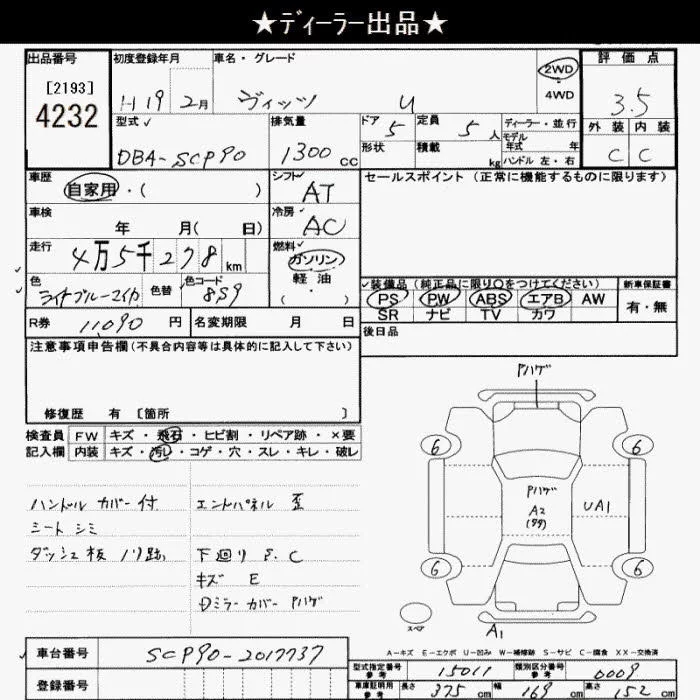 ★ディーラー出品★
出品番号 初度登録年月 車名・グレード 評価点
[2193]
4232
H19 2月 ヴィッツ U 2WD ・ 4WD 3.5
型式 排気量 ドア 5 定員 5人 ディーラー・並行 外装 内装
形状 積載 kg モデル年式 年 ハンドル 左・右
DBA-SCP90 1300cc C C
車歴 自家用・( ) シフト AT セールスポイント(正常に機能するものに限ります)
車検 年 月( 日) 冷房 AC
走行 4万5千278km 燃料 ガソリン 軽油 ・ ( )
色 ライトブルーマイカ 色替 色コード 8S9
装備品(純正品に限り○をつけてください) 新車保証書
PS PW ABS エアB AW 有・無
SR ナビ TV カワ
R券 11,090円 名変期限 月 日 後日品
注意事項申告欄(不具合内容等は具体的に記入して下さい)
修復歴 有 [箇所 ]
検査員 FW キズ・飛石・ヒビ割・リペア跡・×要
記入欄 内装 キズ・汚レ・コゲ・穴・スレ・キレ・破レ
ハンドル カバー付 エンドパネル 歪
シート シミ
ダッシュ板 ノリ跡 下廻り S.C
キズ E
Dミラーカバー Pハゲ
Pハゲ
6 6
Pハゲ
A2
UA1
6 6
スペア A1
A-キズ E-エクボ U-凹み W-補修跡 S-サビ C-腐食 XX-交換済
車台番号 SCP90-2017737
登録番号
型式指定番号 参考 15011 類別区分番号 参考 0009
車庫証明用 参考 長さ 375cm 幅 169cm 高さ 152cm